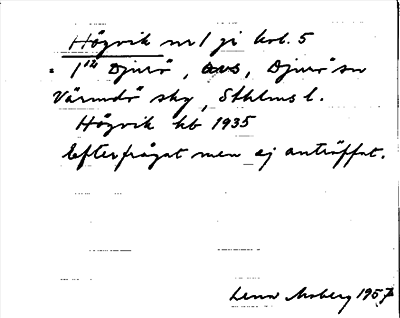 Högvik nr 1 ji kol. 5
= 1¹² Djurö, avs, Djurö sn
Värmdö sky, Sthlms l.
Högvik kb 1935
Efterfrågat men ej anträffat.
Lena Moberg 1957